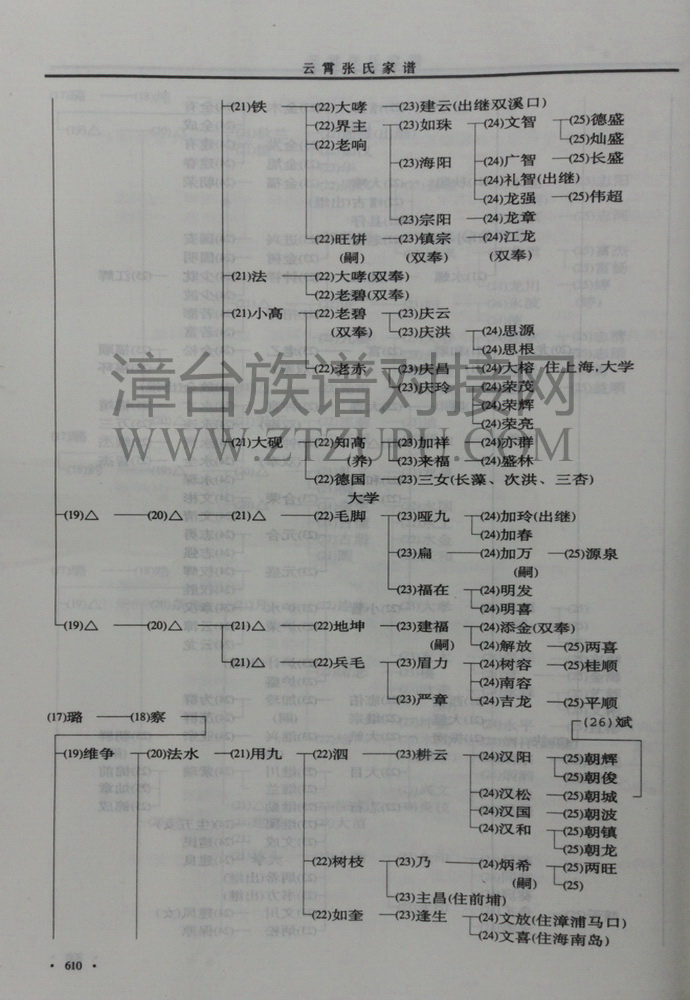 云霄张氏家谱
(21)铁 (22)大哮 (23)建云(出继双溪口)
(22)界主 (23)如珠 (24)文智 (25)德盛
(22)老响 (25)灿盛
(23)海阳 (24)广智 (25)长盛
(24)礼智(出继)
(24)龙强 (25)伟超
(23)宗阳 (24)龙章
(22)旺饼 (23)镇宗 (24)江龙
(嗣) (双奉) (双奉)
(21)法 (22)大哮(双奉)
(22)老碧(双奉)
(21)小高 (22)老碧 (23)庆云
(双奉) (23)庆洪 (24)思源
(24)思根
(22)老赤 (23)庆昌 (24)大榕 住上海,大学
(23)庆玲 (24)荣茂
(24)荣辉
(24)荣亮
(21)大砚 (22)知高 (23)加祥 (24)亦群
(养) (23)来福 (24)盛林
(22)德国 (23)三女(长藻、次洪、三杏)
大学
(19)△ (20)△ (21)△ (22)毛脚 (23)哑九 (24)加玲(出继)
(24)加春
(23)扁 (24)加万 (25)源泉
(嗣)
(23)福在 (24)明发
(24)明喜
(19)△ (20)△ (21)△ (22)地坤 (23)建福 (24)添金(双奉)
(嗣) (24)解放 (25)两喜
(21)△ (22)兵毛 (23)眉力 (24)树容 (25)桂顺
(24)南容
(23)严章 (24)吉龙 (25)平顺
(17)璐 (18)察 (26)斌
(19)维争 (20)法水 (21)用九 (22)泗 (23)耕云 (24)汉阳 (25)朝辉
(25)朝俊
(24)汉松 (25)朝城
(24)汉国 (25)朝波
(24)汉和 (25)朝镇
(25)朝龙
(22)树枝 (23)乃 (24)炳希 (25)两旺
(嗣) (25)
(23)主昌(住前埔)
(22)如奎 (23)逢生 (24)文放(住漳浦马口)
(24)文喜(住海南岛)
· 610 ·
漳台族谱对接网
WWW.ZTZUPU.COM